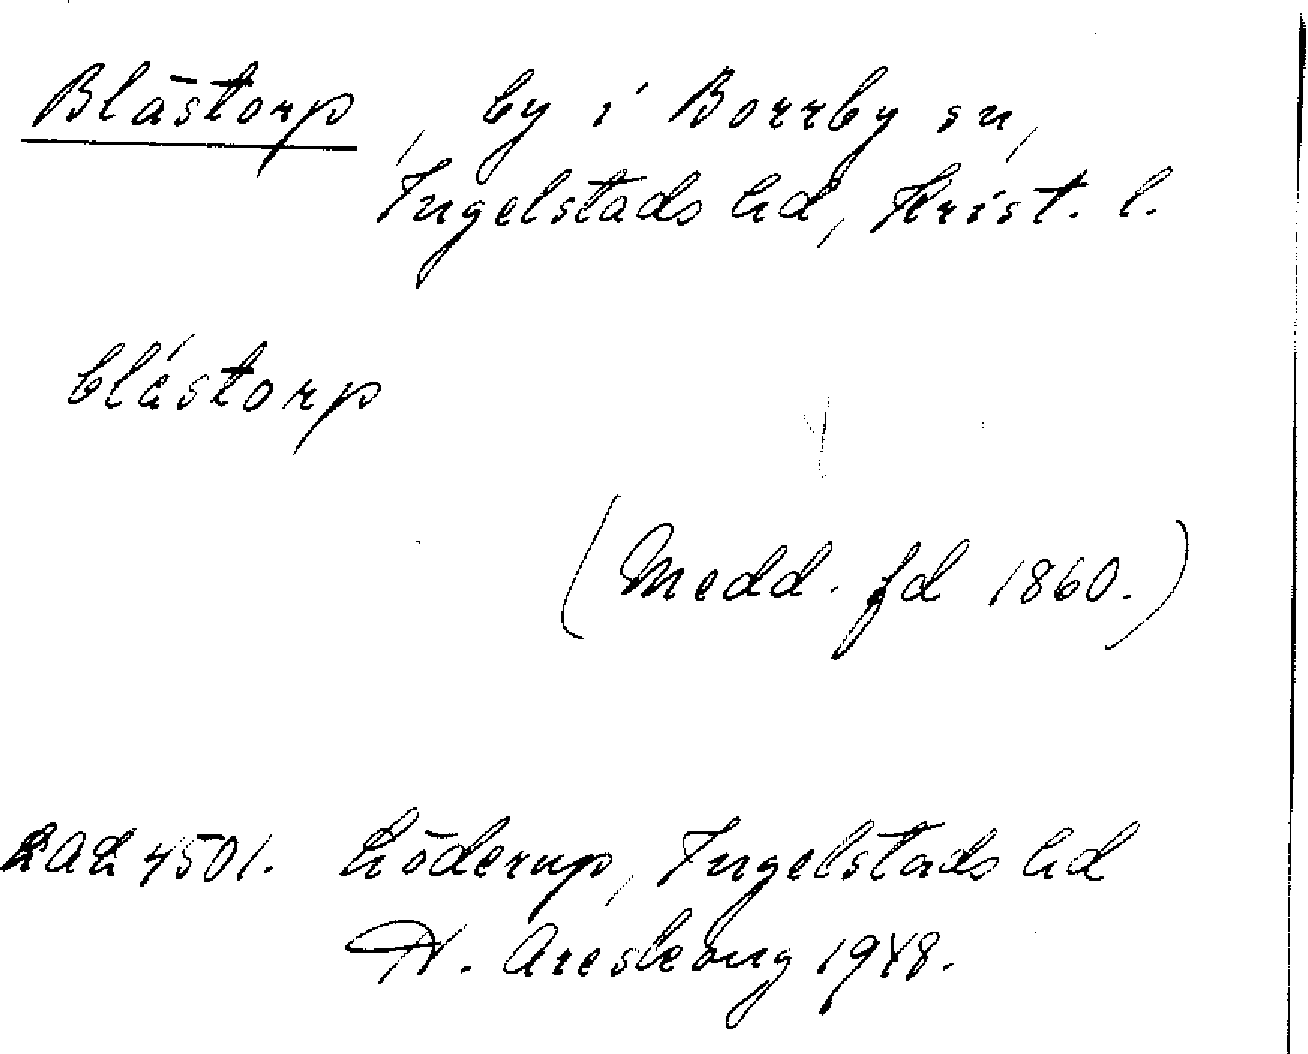 Blästorp, by i Borrby sn,
Ingelstads hd, Krist. l.
blástorp
(Medd. fd 1860.)
4501. Löderup, Ingelstads hd
1948.